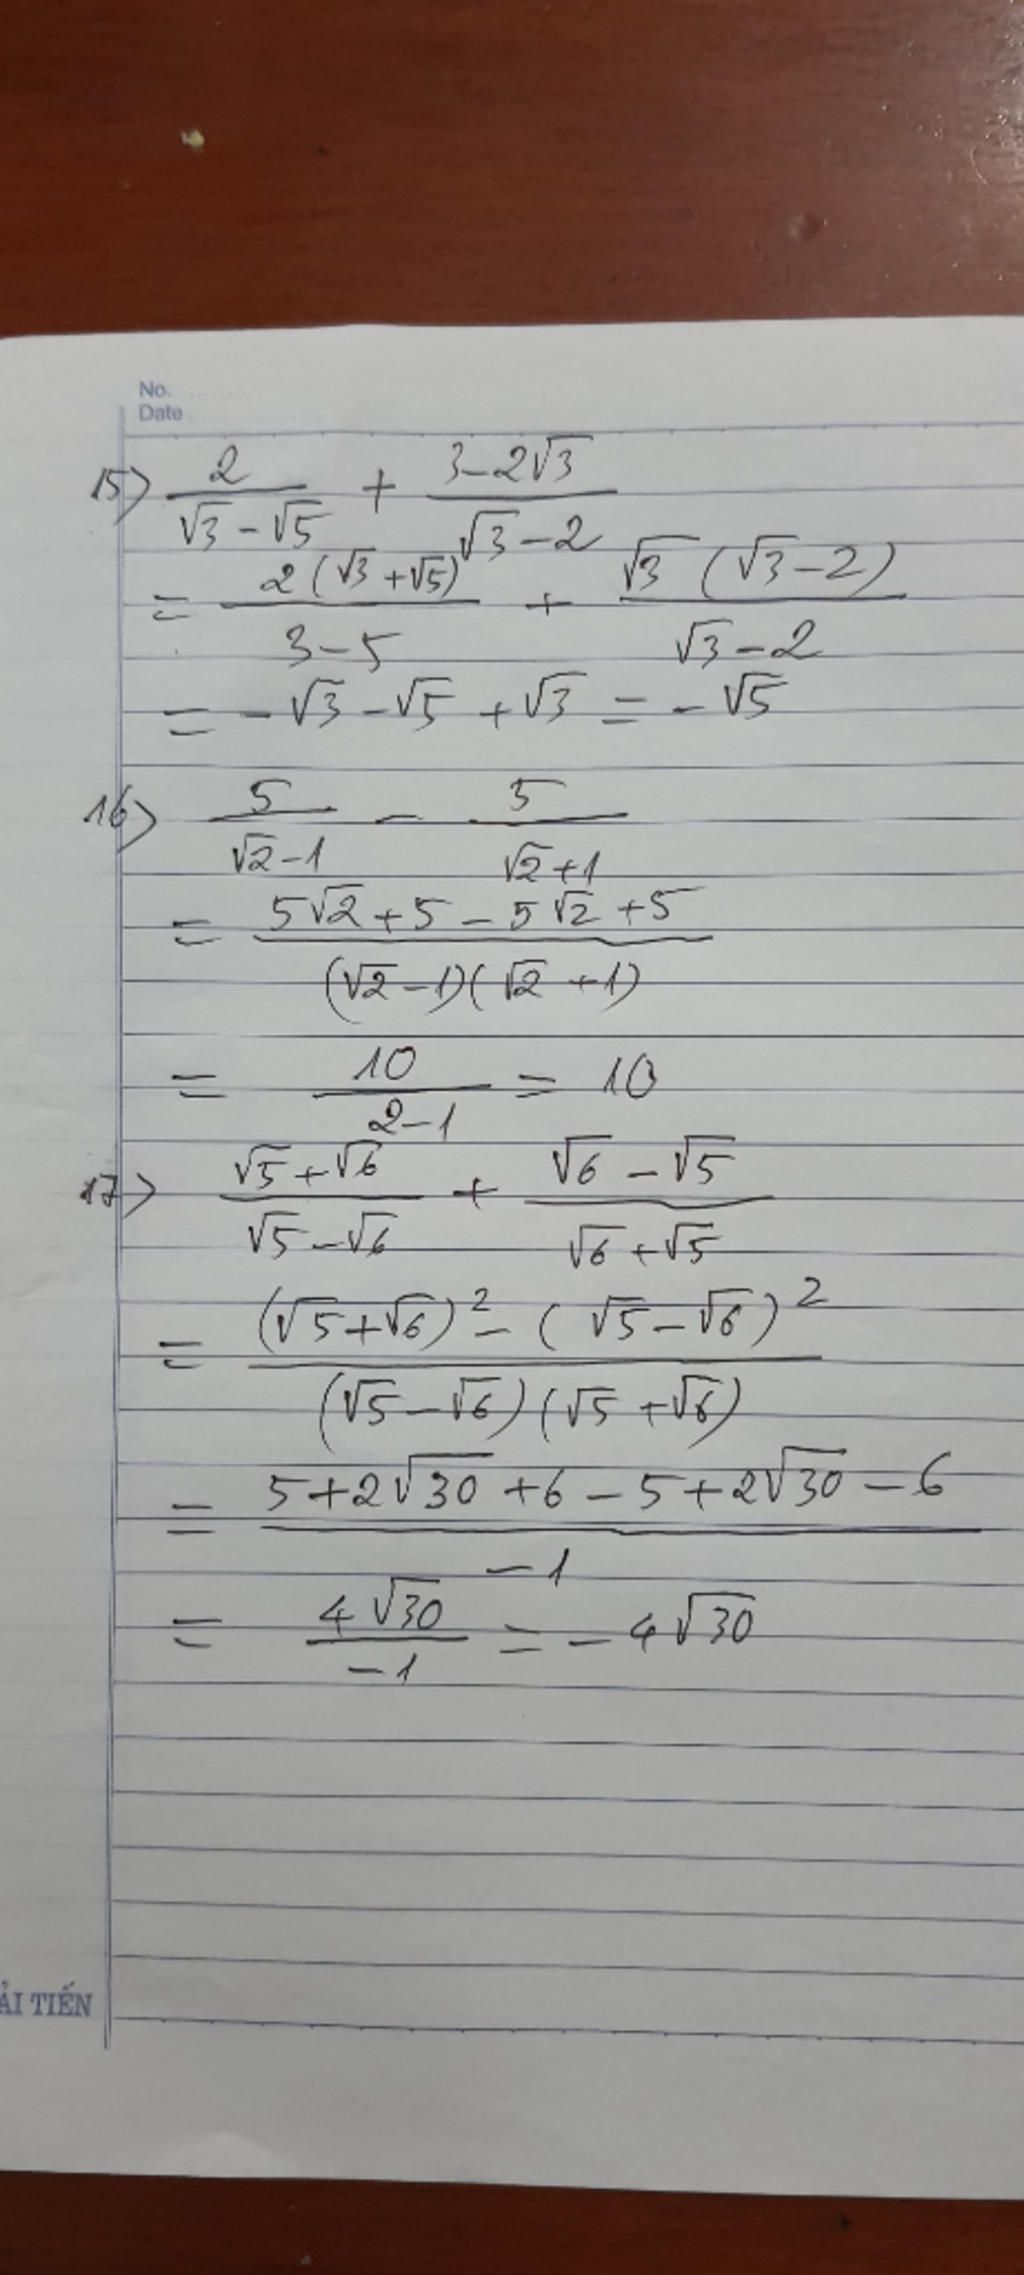 No.
Date
15) 2/(√3 - √5) + (3 - 2√3)/(√3 - 2)
= 2(√3 + √5)/(3 - 5) + √3(√3 - 2)/(√3 - 2)
= -√3 - √5 + √3 = -√5
16) 5/(√2 - 1) - 5/(√2 + 1)
= (5√2 + 5 - 5√2 + 5)/((√2 - 1)(√2 + 1))
= 10/(2 - 1) = 10
17) (√5 + √6)/(√5 - √6) + (√6 - √5)/(√6 + √5)
= ((√5 + √6)² - (√5 - √6)²)/((√5 - √6)(√5 + √6))
= (5 + 2√30 + 6 - 5 + 2√30 - 6)/(-1)
= 4√30/(-1) = -4√30
ẢI TIẾN